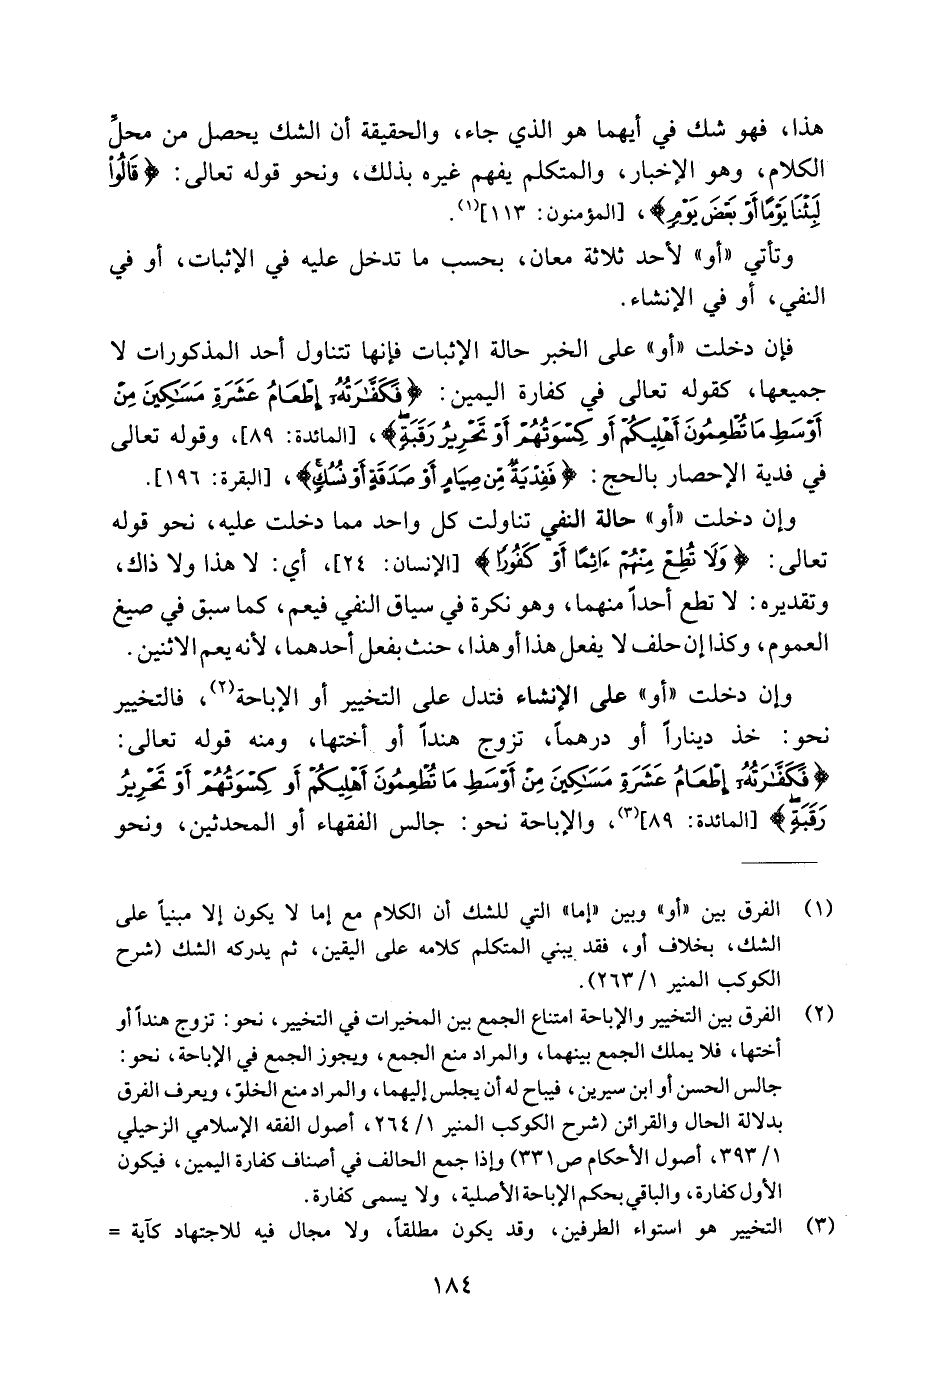 هذا، فهو شك في أيهما هو الذي جاء، والحقيقة أن الشك يحصل من محلِّ
الكلام، وهو الإخبار، والمتكلم يفهم غيره بذلك، ونحو قوله تعالى: ﴿قَالُوا۟
لَبِثْنَا يَوْمًا أَوْ بَعْضَ يَوْمٍ﴾، [المؤمنون: ١١٣](١).
وتأتي «أو» لأحد ثلاثة معان، بحسب ما تدخل عليه في الإثبات، أو في
النفي، أو في الإنشاء.
فإن دخلت «أو» على الخبر حالة الإثبات فإنها تتناول أحد المذكورات لا
جميعها، كقوله تعالى في كفارة اليمين: ﴿فَكَفَّـٰرَتُهُۥٓ إِطْعَامُ عَشَرَةِ مَسَـٰكِينَ مِنْ
أَوْسَطِ مَا تُطْعِمُونَ أَهْلِيكُمْ أَوْ كِسْوَتُهُمْ أَوْ تَحْرِيرُ رَقَبَةٍۖ﴾، [المائدة: ٨٩]، وقوله تعالى
في فدية الإحصار بالحج: ﴿فَفِدْيَةٌ مِّن صِيَامٍ أَوْ صَدَقَةٍ أَوْ نُسُكٍۚ﴾، [البقرة: ١٩٦].
وإن دخلت «أو» حالة النفي تناولت كل واحد مما دخلت عليه، نحو قوله
تعالى: ﴿وَلَا تُطِعْ مِنْهُمْ ءَاثِمًا أَوْ كَفُورًا﴾ [الإنسان: ٢٤]، أي: لا هذا ولا ذاك،
وتقديره: لا تطع أحداً منهما، وهو نكرة في سياق النفي فيعم، كما سبق في صيغ
العموم، وكذا إن حلف لا يفعل هذا أو هذا، حنث بفعل أحدهما، لأنه يعم الاثنين.
وإن دخلت «أو» على الإنشاء فتدل على التخيير أو الإباحة(٢)، فالتخيير
نحو: خذ ديناراً أو درهماً، تزوج هنداً أو أختها، ومنه قوله تعالى:
﴿فَكَفَّـٰرَتُهُۥٓ إِطْعَامُ عَشَرَةِ مَسَـٰكِينَ مِنْ أَوْسَطِ مَا تُطْعِمُونَ أَهْلِيكُمْ أَوْ كِسْوَتُهُمْ أَوْ تَحْرِيرُ
رَقَبَةٍۖ﴾ [المائدة: ٨٩](٣)، والإباحة نحو: جالس الفقهاء أو المحدثين، ونحو
(١) الفرق بين «أو» وبين «إما» التي للشك أن الكلام مع إما لا يكون إلا مبنياً على
الشك، بخلاف أو، فقد يبني المتكلم كلامه على اليقين، ثم يدركه الشك (شرح
الكوكب المنير ١/ ٢٦٣).
(٢) الفرق بين التخيير والإباحة امتناع الجمع بين المخيرات في التخيير، نحو: تزوج هنداً أو
أختها، فلا يملك الجمع بينهما، والمراد منع الجمع، ويجوز الجمع في الإباحة، نحو:
جالس الحسن أو ابن سيرين، فيباح له أن يجلس إليهما، والمراد منع الخلوّ، ويعرف الفرق
بدلالة الحال والقرائن (شرح الكوكب المنير ١/ ٢٦٤، أصول الفقه الإسلامي الزحيلي
١/ ٣٩٣، أصول الأحكام ص٣٣١) وإذا جمع الحالف في أصناف كفارة اليمين، فيكون
الأول كفارة، والباقي بحكم الإباحة الأصلية، ولا يسمى كفارة.
(٣) التخيير هو استواء الطرفين، وقد يكون مطلقاً، ولا مجال فيه للاجتهاد كآية =
١٨٤